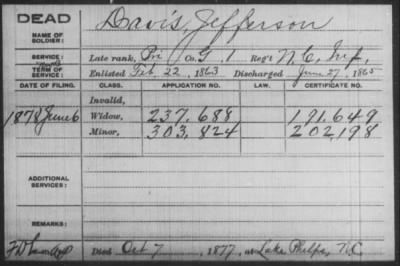 DEAD
NAME OF SOLDIER: Davis, Jefferson
SERVICE: Late rank, Pri Co. G, 1 Reg't N.C. Inf,
TERM OF SERVICE: Enlisted Feb. 22, 1863 Discharged June 27, 1865
DATE OF FILING. CLASS. APPLICATION NO. LAW. CERTIFICATE NO.
Invalid,
1878 June 6 Widow, 237.688 191.649
Minor, 303,824 202,198
ADDITIONAL SERVICES:
REMARKS:
Died Oct 7, 1877, at Lake Phelps, N.C.